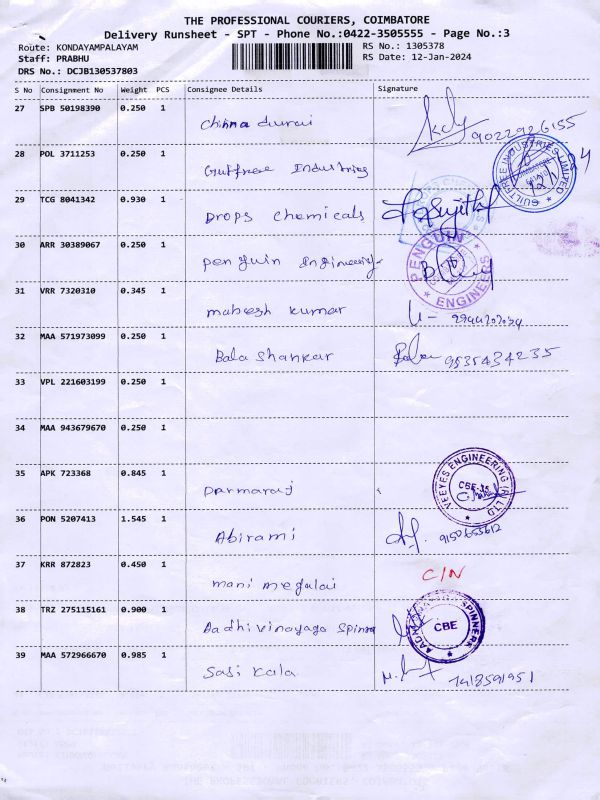 THE PROFESSIONAL COURIERS, COIMBATORE
Delivery Runsheet - SPT - Phone No.:0422-3505555 - Page No.:3
Route: KONDAYAMPALAYAM
RS No.: 1305378
Staff: PRABHU
RS Date: 12-Jan-2024
DRS No.: DCJB130537803
S No Consignment No Weight PCS Consignee Details Signature
27 SPB 50198390 0.250 1 Chinna durai 9022926155
28 POL 3711253 0.250 1 Guiltfree Industries
GUILTFREE INDUSTRIES LIMITED
29 TCG 8041342 0.930 1 Drops chemicals Sujitha
30 ARR 30389067 0.250 1 penguin Engineering
PENGUIN ENGINEERS
31 VRR 7320310 0.345 1 mahesh kumar
32 MAA 571973099 0.250 1 Bala shankar 9535434235
33 VPL 221603199 0.250 1
34 MAA 943679670 0.250 1
35 APK 723368 0.845 1 Darmaraj
VEEYES ENGINEERING (P) LTD
CBE-35
36 PON 5207413 1.545 1 Abirami 9150653612
37 KRR 872823 0.450 1 mani megalai C/N
38 TRZ 275115161 0.900 1 Aadhi vinayaga spinna
SPINNERS
CBE
39 MAA 572966670 0.985 1 Sasi kala 7418591951